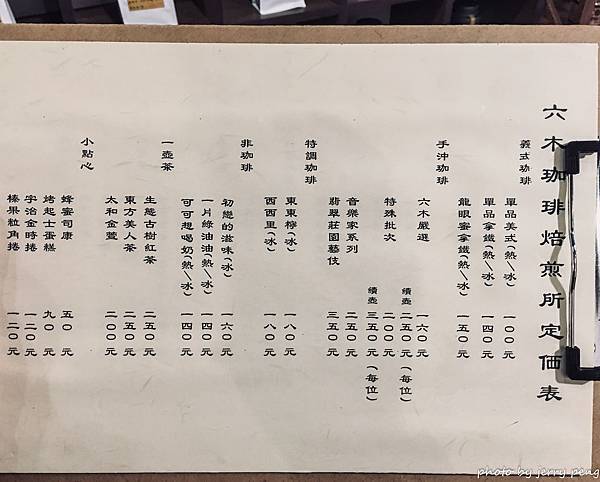 六木珈琲焙煎所定価表
義式珈琲
單品美式(熱/冰) 一００元
單品拿鐵(熱/冰) 一四０元
龍眼蜜拿鐵(熱/冰) 一五０元
手沖珈琲
六木嚴選 一六０元
續壺 二五０元(每位)
特殊批次 二００元
續壺 三五０元(每位)
音樂家系列 二五０元
翡翠莊園藝伎 三五０元
特調珈琲
東東檸(冰) 一八０元
西西里(冰) 一八０元
非珈琲
初戀的滋味(冰) 一六０元
一片綠油油(熱/冰) 一四０元
可可想喝奶(熱/冰) 一四０元
一壺茶
生態古樹紅茶 二五０元
東方美人茶 二五０元
太和金萱 二００元
小點心
蜂蜜司康 五０元
烤起士蛋糕 九０元
宇治金時捲 一二０元
榛果粒角捲 一二０元
photo by jerry peng